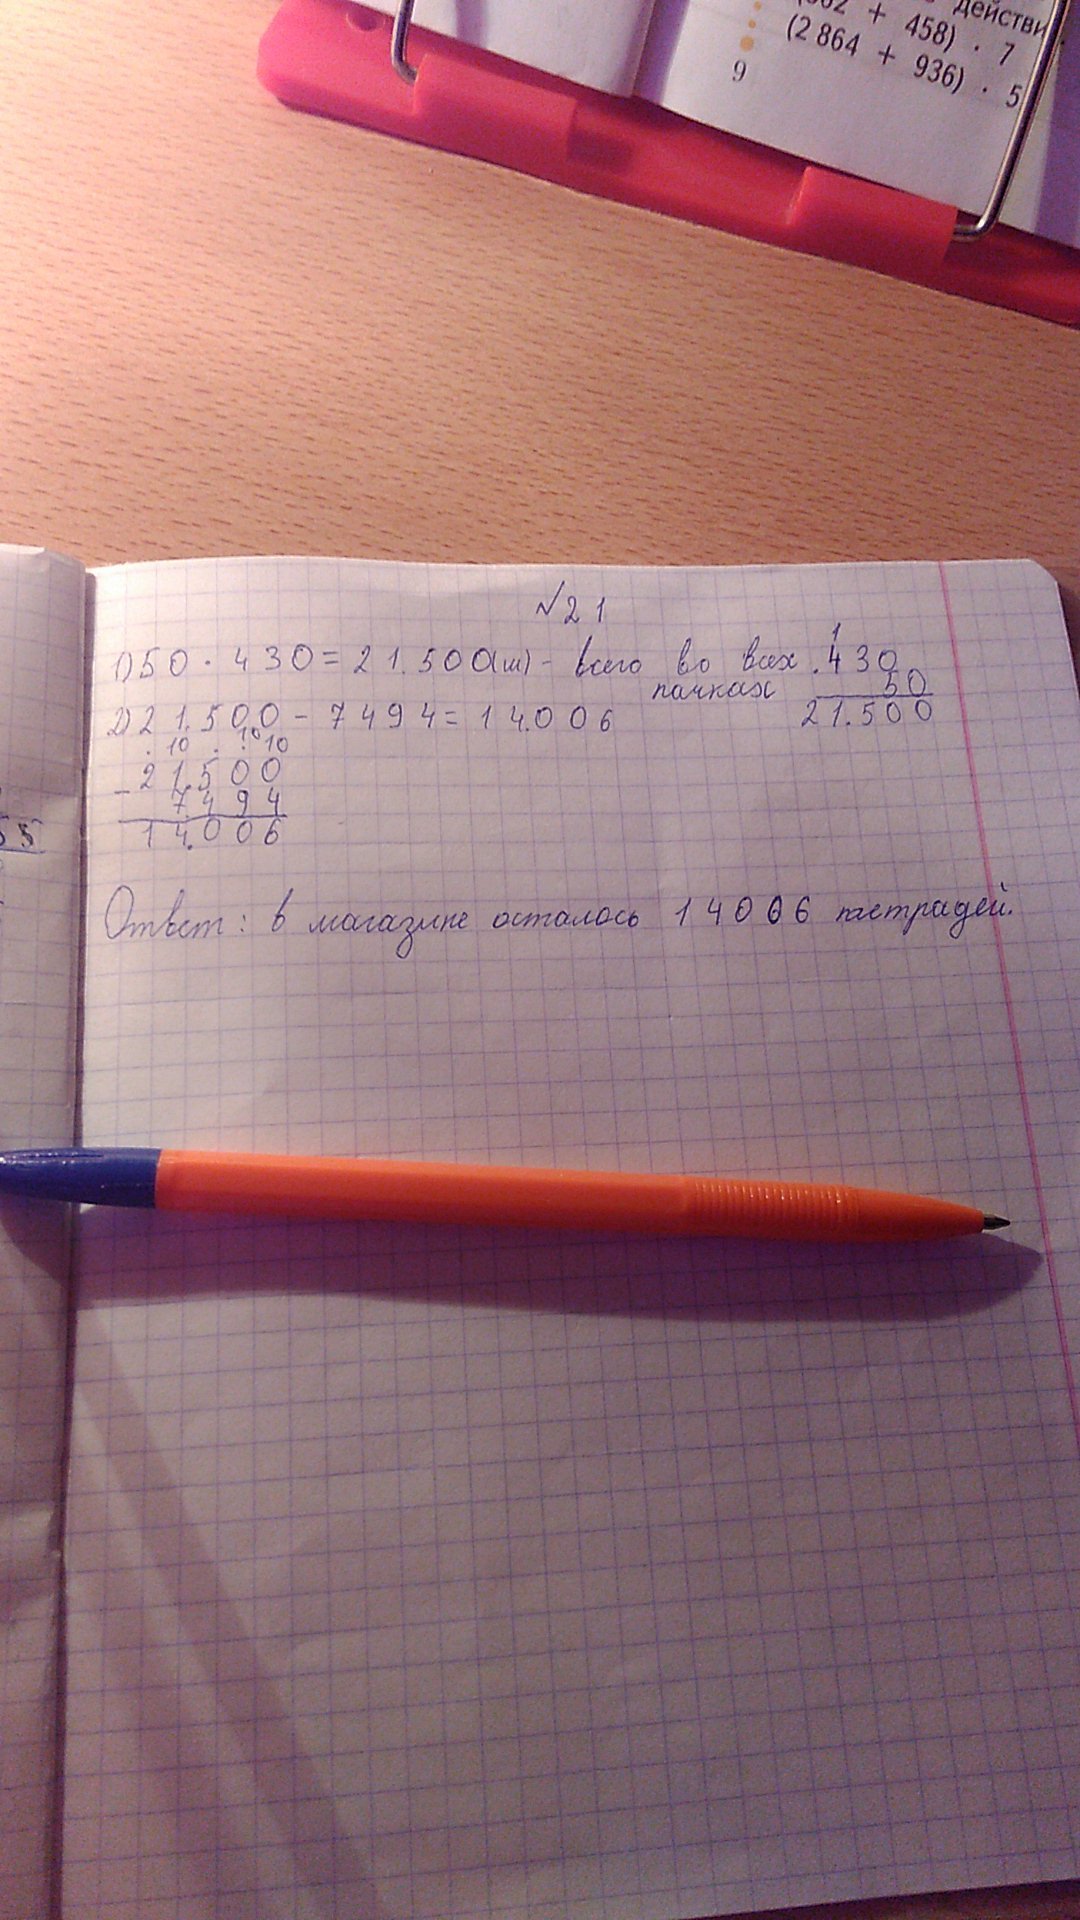 действи
+ 458) · 7
(2 864 + 936) · 5
9
№21
1) 50 · 430 = 21.500(ш) - всего во всех
пачках
1
430
50
21.500
2) 21.500 - 7494 = 14.006
. 10 . . 10 10
21.500
- 7494
14.006
Ответ: в магазине осталось 14006 тетрадей.